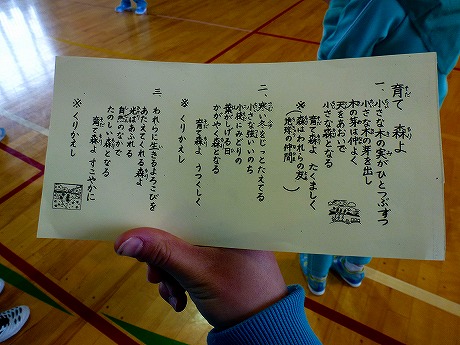 育て 森よ
一、小さな木の実がひとつぶずつ
小さな木の芽を出し
木の芽は仲よく
天をあおいで
小さな森となる
育て森よ たくましく
※森はわれらの友
(地球の仲間)
二、寒い冬をじっとたえてる
小さな強いいのち
小枝にみどりの
葉がしげる日
かがやく森となる
育て森よ うつくしく
※くりかえし
三、われらに生きるよろこびを
あたえてくれる森よ
光はあふれる
自然のなかで
たのしい森となる
育て森よ すこやかに
※くりかえし